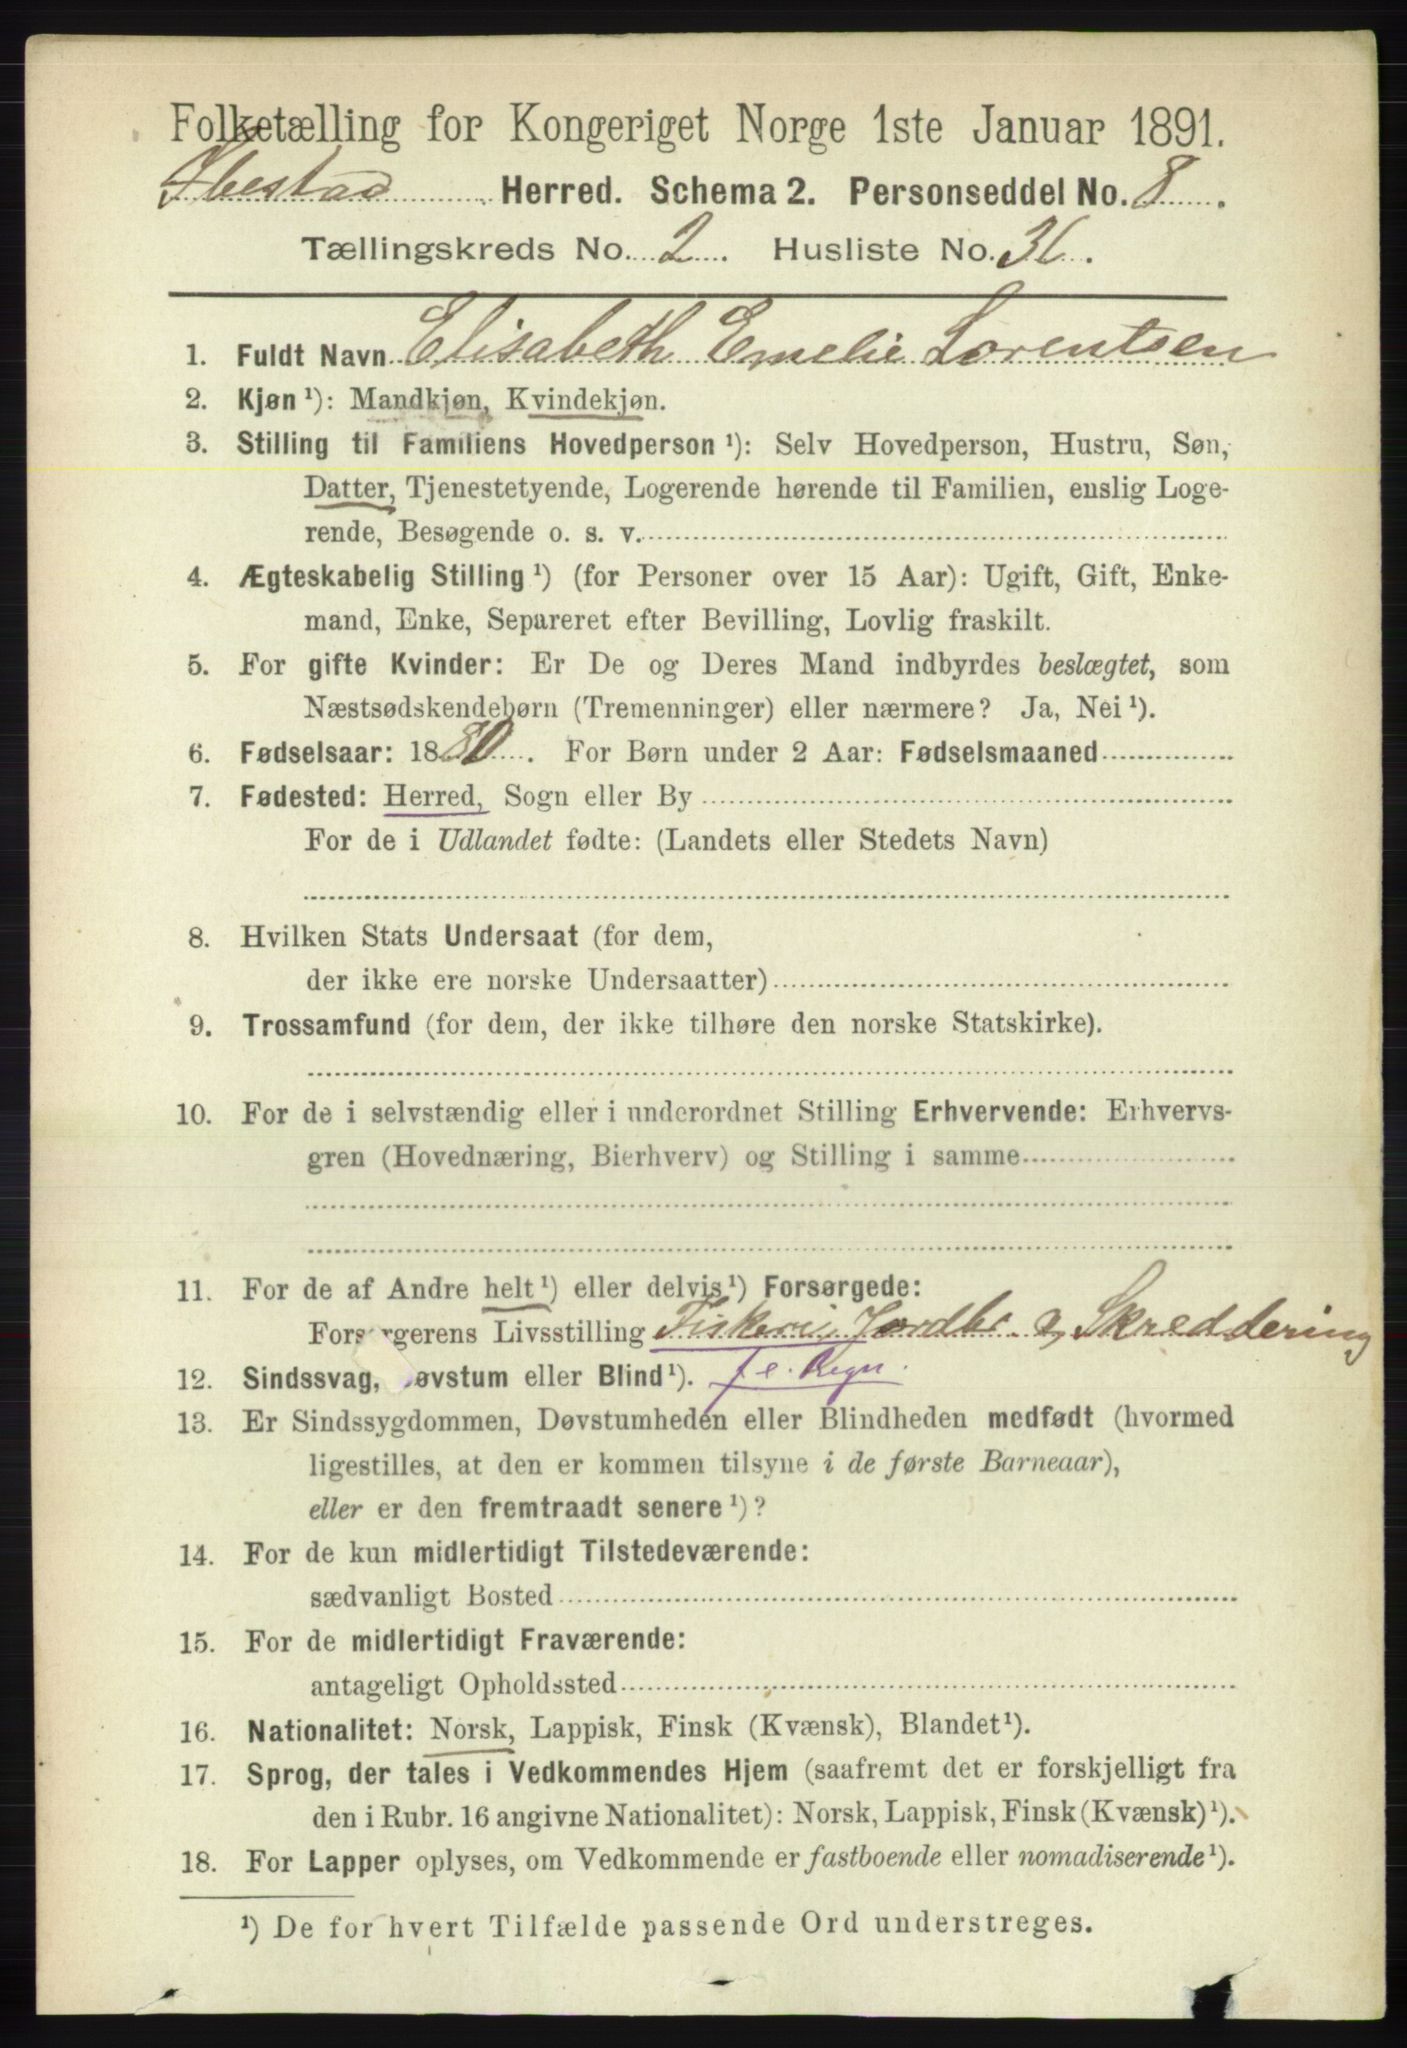 Folketælling for Kongeriget Norge 1ste Januar 1891.
Ibestad Herred. Schema 2. Personseddel No. 8.
Tællingskreds No. 2. Husliste No. 36.
1. Fuldt Navn Elisabeth Emelie Lorentsen
2. Kjøn ¹): Mandkjøn, Kvindekjøn.
3. Stilling til Familiens Hovedperson ¹): Selv Hovedperson, Hustru, Søn,
Datter, Tjenestetyende, Logerende hørende til Familien, enslig Loge-
rende, Besøgende o. s. v.
4. Ægteskabelig Stilling ¹) (for Personer over 15 Aar): Ugift, Gift, Enke-
mand, Enke, Separeret efter Bevilling, Lovlig fraskilt.
5. For gifte Kvinder: Er De og Deres Mand indbyrdes beslægtet, som
Næstsødskendebørn (Tremenninger) eller nærmere? Ja, Nei ¹).
6. Fødselsaar: 1880. For Børn under 2 Aar: Fødselsmaaned
7. Fødested: Herred, Sogn eller By
For de i Udlandet fødte: (Landets eller Stedets Navn)
8. Hvilken Stats Undersaat (for dem,
der ikke ere norske Undersaatter)
9. Trossamfund (for dem, der ikke tilhøre den norske Statskirke).
10. For de i selvstændig eller i underordnet Stilling Erhvervende: Erhvervs-
gren (Hovednæring, Bierhverv) og Stilling i samme
11. For de af Andre helt ¹) eller delvis ¹) Forsørgede:
Forsørgerens Livsstilling Fiskeri, Jordbr. og Skreddering
12. Sindssvag, Døvstum eller Blind ¹). f. e. Regn.
13. Er Sindssygdommen, Døvstumheden eller Blindheden medfødt (hvormed
ligestilles, at den er kommen tilsyne i de første Barneaar),
eller er den fremtraadt senere ¹)?
14. For de kun midlertidigt Tilstedeværende:
sædvanligt Bosted
15. For de midlertidigt Fraværende:
antageligt Opholdssted
16. Nationalitet: Norsk, Lappisk, Finsk (Kvænsk), Blandet ¹).
17. Sprog, der tales i Vedkommendes Hjem (saafremt det er forskjelligt fra
den i Rubr. 16 angivne Nationalitet): Norsk, Lappisk, Finsk (Kvænsk) ¹).
18. For Lapper oplyses, om Vedkommende er fastboende eller nomadiserende ¹).
¹) De for hvert Tilfælde passende Ord understreges.